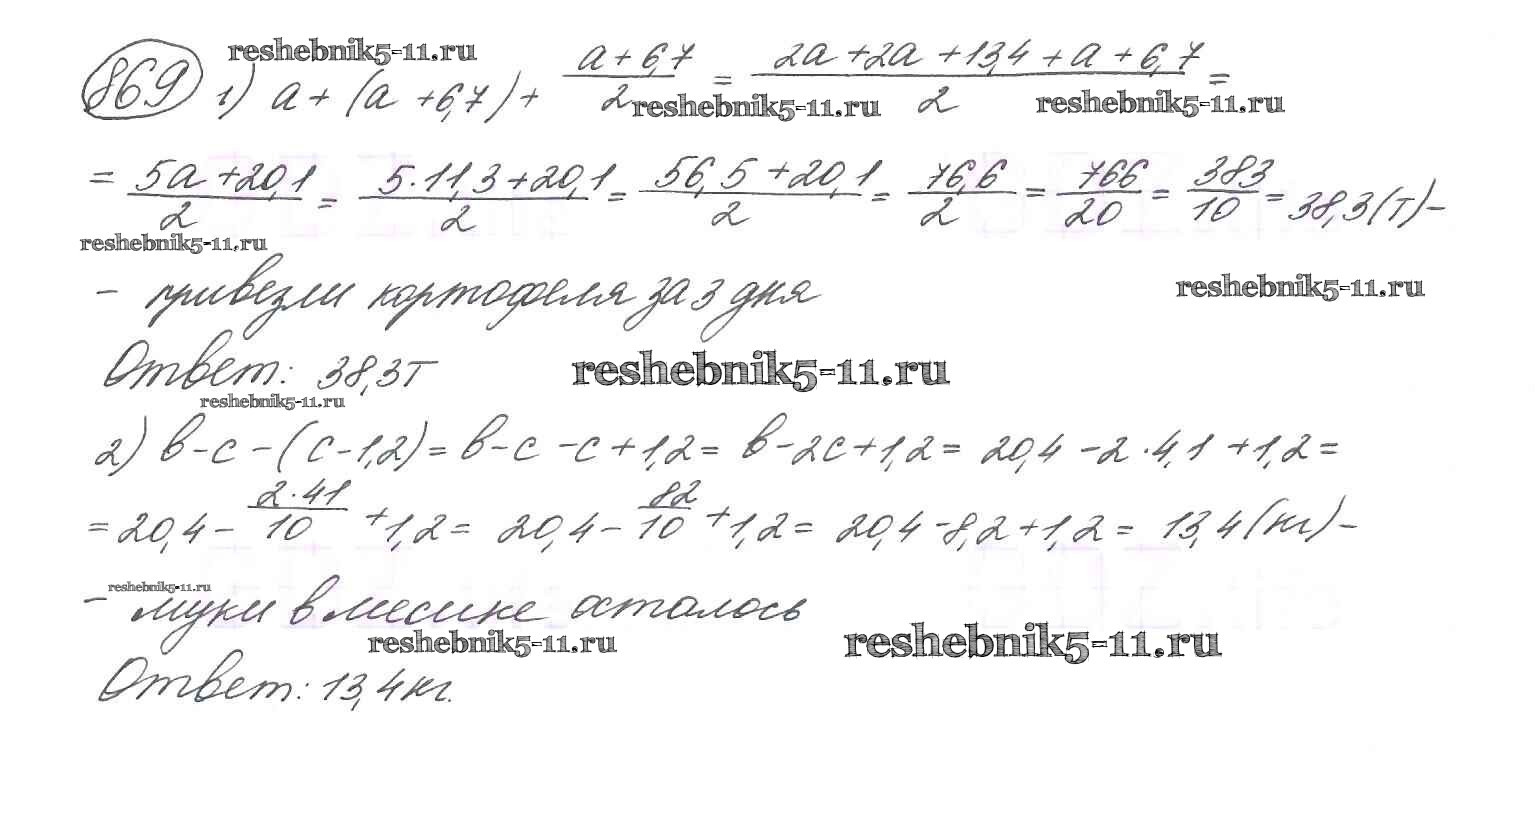 reshebnik5-11.ru
869 1) a + (a + 6,7) + (a + 6,7)/2 = (2a + 2a + 13,4 + a + 6,7)/2 =
reshebnik5-11.ru reshebnik5-11.ru
= (5a + 20,1)/2 = (5·11,3 + 20,1)/2 = (56,5 + 20,1)/2 = 76,6/2 = 766/20 = 383/10 = 38,3 (т) –
reshebnik5-11.ru
– привезли картофеля за 3 дня
reshebnik5-11.ru
Ответ: 38,3 т
reshebnik5-11.ru
reshebnik5-11.ru
2) в – с – (с – 1,2) = в – с – с + 1,2 = в – 2с + 1,2 = 20,4 – 2·4,1 + 1,2 =
= 20,4 – 2·41/10 + 1,2 = 20,4 – 82/10 + 1,2 = 20,4 – 8,2 + 1,2 = 13,4 (кг) –
reshebnik5-11.ru
– муки в месшке осталось
reshebnik5-11.ru reshebnik5-11.ru
Ответ: 13,4 кг.